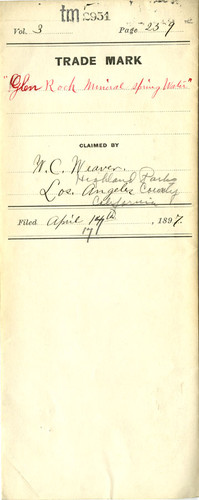 tm 2954
Vol. 3 Page 259
TRADE MARK
"Glen Rock Mineral Spring Water"
CLAIMED BY
W. C. Weaver.
Highland Park
Los. Angeles County
California
Filed April 14th, 1897.
17